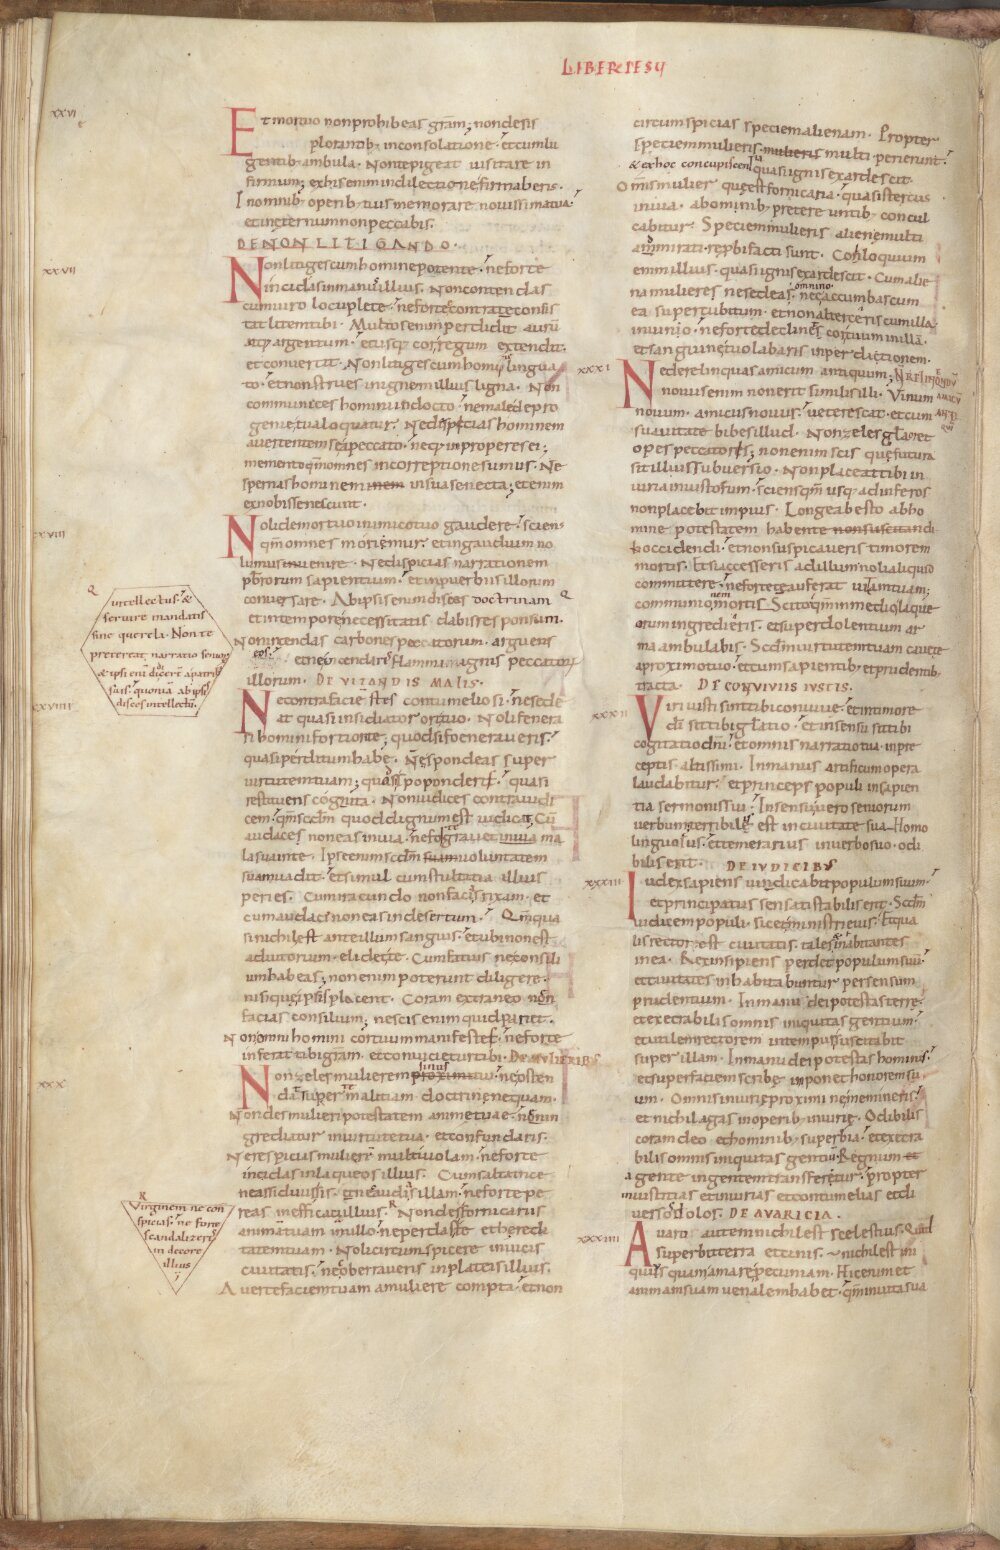 LIBER IESU
XXVI
Et mortuo non prohibeas gr̄am; non desis
plorantib; in consolatione · et cum lu
gentib; ambula · Non te pigeat uisitare in
firmum; ex his enim in dilectione firmaberis ·
In omnib; operib; tuis memorare nouissima tua ·
et in eternum non peccabis ·
DE NON LITIGANDO ·
XXVII
Non litiges cum homine potente · ne forte
incidas in manus illius · Non contendas
cum uiro locuplete · ne forte contra te consti
tat litem tibi · Multos enim perdidit aurū
atq; argentum · et usq; cor regum extendit ·
et conuertit · Non litiges cum homine lingua
to · et non strues in ignem illius ligna · Non
communices homini indocto · ne male de pro
genie tua loquatur · Ne despicias hominem
auertentem se a peccato · neq; inproperes ei ·
memento qm̄ omnes in correptione sumus · Ne
spernas hominem inem in sua senecta; etenim
ex nobis senescunt ·
XXVIII
Noli de mortuo inimico tuo gaudere · sciens
qm̄ omnes morięmur · et in gaudium no
lumus uenire · Ne despicias narrationem
pb̄rorum sapientium · et in puerbiis illorum
conuersare · Ab ipsis enim disces doctrinam
et in tempore necessitatis dabis responsum ·
Non incendas carbones peccatorum · arguens
eos ·
et ne incendaris flamma ignis peccatorū
illorum · DE VITANDIS MALIS ·
XXVIIII
Ne contra faciē stes contumeliosi · ne sede
at quasi insidiator ori tuo · Noli fenera
ri homini fortiori te; quod si foeneraueris ·
quasi perditum habe · Ne spondeas super
uirtutem tuam; quod si spoponderis · quasi
restituens cogita · Non iudices contra iudi
cem · qm̄ scdm quod dignum est iudicat · Cū
audaces non eas in uia · ne forte grauet mala
sua in te · Ipse enim scdm suam uoluntatem
suam uadit · et simul cum stultitia illius
peries · Cum iracundo non facies rixam · et
cum audace non eas in desertum · Qm̄ qua
si nichil est ante illum sanguis · et ubi non est
adiutorium · elidet te · Cum fatuis ne consili
um habeas; non enim poterunt diligere ·
nisi quę ipsis placent · Coram extraneo non
facias consilium; nescis enim quid pariet ·
Non omni homini cor tuum manifestes · ne forte
inferat tibi gr̄am · et conuicietur tibi · DE MULIERIBUS
XXX
sinus
Non zeles mulierem proximi tui · ne osten
dat super te malitiam doctrine nequam ·
Non des mulieri potestatem anime tuae · ne in
grediatur in uirtute tua · et confundaris ·
Ne respicias mulierē multiuolam · ne forte
incidas in laqueos illius · Cum saltatrice
ne assiduus sis · nec audias illam · ne forte pe
reas in efficacia illius · Non des fornicariis
animam tuam in nullo · ne perdas te et heredi
tatem tuam · Noli circumspicere in uicis
ciuitatis · nec oberraueris in plateis illius ·
Auerte faciem tuam a muliere compta · et non
Q
intellectus · &
seruire mandatis
sine querela · Non te
pretereat narratio seniorū
& ipsi enī didicert̄ a patrib;
suis · quoniā ab ipsis
disces intellectū ·
R
Virginem ne con
spicias · ne forte
scandalizeris
in decore
illius
circumspicias speciem alienam · Propter
speciem mulieris mulieris multi perierunt ·
& ex hoc concupiscentia quasi ignis exardescit ·
Omnis mulier quę est fornicaria · quasi stercus
in uia · ab omnib; pretereuntib; concul
cabitur · Speciem mulieris alienę multi
ammirati · reprobi facti sunt · Colloquium
enim illius · quasi ignis exardescit · Cum alie
na muliere ne sedeas omnino · nec accumbas cum
ea super cubitum · et non alterceris cum illa
in uino · ne forte declinet cor tuum in illā ·
et sanguine tuo labaris in perditionem ·
XXXI
Ne derelinquas amicum antiquum; NE RELINQUENDŪ
AMICŪ
ANTI
QUŪ
nouus enim non erit similis illi · Vinum
nouum · amicus nouus · ueterescat · et cum
suauitate bibes illud · Non zeles gl̄a et
opes peccatoris; non enim scis quę futura
sit illius subuersio · Non placeat tibi in
iuria iniustorum · sciens qm̄ usq; ad inferos
non placebit impius · Longe abesto ab ho
mine potestatem habente non suscitandi
& occidendi · et non suspicaueris timorem
mortis · Et si accesseris ad illum noli aliquid
committere · ne forte te auferat uitam tuam;
communionem mortis Scito qm̄ in medio laque
orum ingredieris · et super dolentium ar
ma ambulabis · Scdm uirtutem tuam cauete
a proximo tuo · et cum sapientib; et prudentib;
tracta · DE CONVIVIIS IUSTIS ·
XXXII
Viri iusti sint tibi conuiue · et in timore
dī sit tibi gl̄atio · et in sensu sit tibi
cogitatio dn̄i · et omnis narratio tua in pre
ceptis altissimi · In manus artificum opera
laudabitur · et princeps populi in sapien
tia sermonis sui · In sensu uero seniorum
uerbum terribile est in ciuitate sua Homo
linguosus · et temerarius in uerbo suo · odi
bilis erit · DE IUDICIBUS
XXXIII
Iudex sapiens uindicabit populum suum ·
et principatus sensati stabilis erit · Scdm
iudicem populi · sic et ministri eius · Et qua
lis rector est ciuitatis · tales et inhabitantes
in ea · Rex insipiens perdet populum suū ·
et ciuitates inhabitabuntur per sensum
prudentium · In manu dei potestas terrę ·
et execrabilis omnis iniquitas gentium ·
et utilem rectorem in tempus suscitabit
super illam · In manu dei potestas hominis ·
et super faciem scribę inponet honorem su
um · Omnis iniurię proximi ne memineris ·
et nichil agas in operib; iniurię · Odibilis
coram deo et hominib; superbia · et execra
bilis omnis iniquitas gentiū · Regnum et
a gente in gentem transferetur · propter
iniustitias et iniurias et contumelias et di
uersos dolos · DE AVARICIA ·
XXXIIII
Auaro autem nichil est scelestius · Quid
superbit terra et cinis · nichil est ini
quius quam amare pecuniam · Hic enim et
animam suam uenalem habet · qm̄ in uita sua